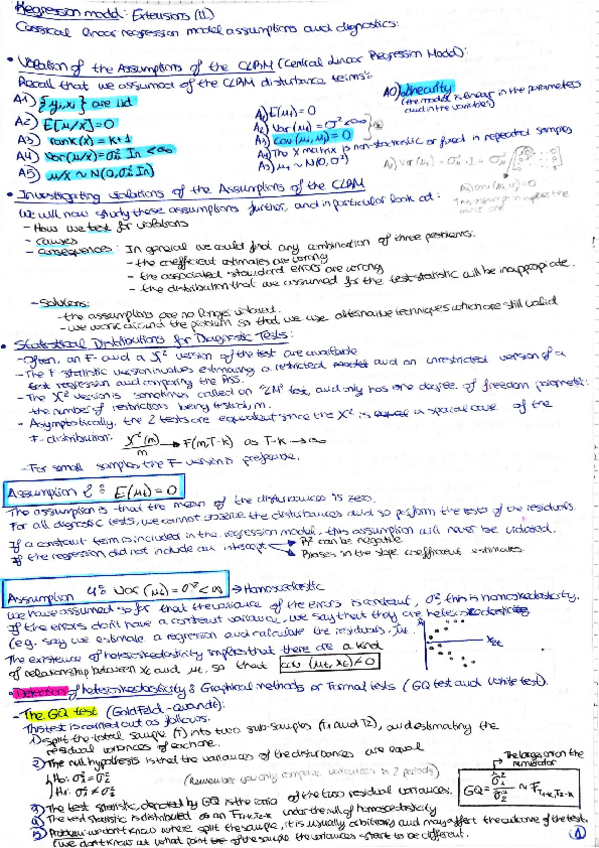 Regression model: Extensions (11)
Classical linear regression model assumptions and diagnostics:
• Violation of the Assumptions of the CLRM (Central Linear Regression Model):
Recall that we assumed of the CLRM disturbance terms:
A0) Linearity
(the model is linear in the parameters and in the variables)
A1) {yi,xi} are iid
A2) E[μ/X]=0
A3) rank(X) = K+1
A4) Var(μ/X)=σ² In < ∞
A5) μ/X ~ N(0,σ² In)
A1) E(μt) = 0
A2) Var(μt) = σ² < ∞
A3) cov(μi,μj) = 0
A4) The X matrix is non-stochastic or fixed in repeated samples
A5) μt ~ N(0,σ²)
• Investigating violations of the Assumptions of the CLRM
We will now study these assumptions further, and in particular look at:
- How we test for violations
- causes
- consequences: In general we could find any combination of three problems:
- the coefficient estimates are wrong
- the associated standard errors are wrong
- the distribution that we assumed for the test-statistic will be inappropiate.
- Solutions:
- the assumptions are no longer violated.
- we work around the problem so that we use alternative techniques which are still valid
• Statistical Distributions for Diagnostic Tests:
- Often, an F- and a χ² version of the test are available
- The F statistic version involves estimating a restricted and an unrestricted version of a
test regression and comparing the RSS.
- The χ² version is sometimes called an "LM" test, and only has one degree of freedom parameter:
the number of restrictions being tested, m.
- Asymptotically, the 2 tests are equivalent since the χ² is a special case of the
F-distribution: χ²(m)/m → F(m,T-K) as T-K → ∞
- For small samples the F version is preferable.
Assumption : E(μt)=0
The assumption is that the mean of the disturbances is zero.
For all diagnostic tests, we cannot observe the disturbances and so perform the tests of the residuals
If a constant term is included in the regression model, this assumption will never be violated.
If the regression did not include an intercept → R² can be negative
Biases in the slope coefficient estimates.
Assumption 4: Var(μt)=σ²<∞ → Homoscedastic
We have assumed so far that the variance of the errors is constant, σ², this is homoskedasticity.
If the errors don't have a constant variance, we say that they are heteroskedastic
(e.g. say we estimate a regression and calculate the residuals, μt.
The existence of heteroskedasticity implies that there are a kind
of relationship between xt and μt, so that cov(μt,xt)≠0
• Detection of heteroskedasticity: Graphical methods or Formal tests (GQ test and White test).
- The GQ test (Goldfeld-Quandt):
This test is carried out as follows.
1) Split the total sample (T) into two sub-samples (T1 and T2), and estimating the
residual variances of each one.
2) The null hypothesis is that the variances of the disturbances are equal
H0: σ1²=σ2²
H1: σ1²≠σ2²
(Remember you only compare variances in 2 periods)
The larger on the numerator
GQ = σ̂1²/σ̂2² ~ F T1-K,T2-K
3) The test statistic, denoted by GQ is the ratio of the two residual variances.
4) The test statistic is distributed as an F T1-K,T2-K under the null of homoscedasticity
5) Problem: we don't know where split the sample, it is usually arbitrary and may affect the outcome of the test.
(we don't know at what point of the sample the variances start to be different.
1